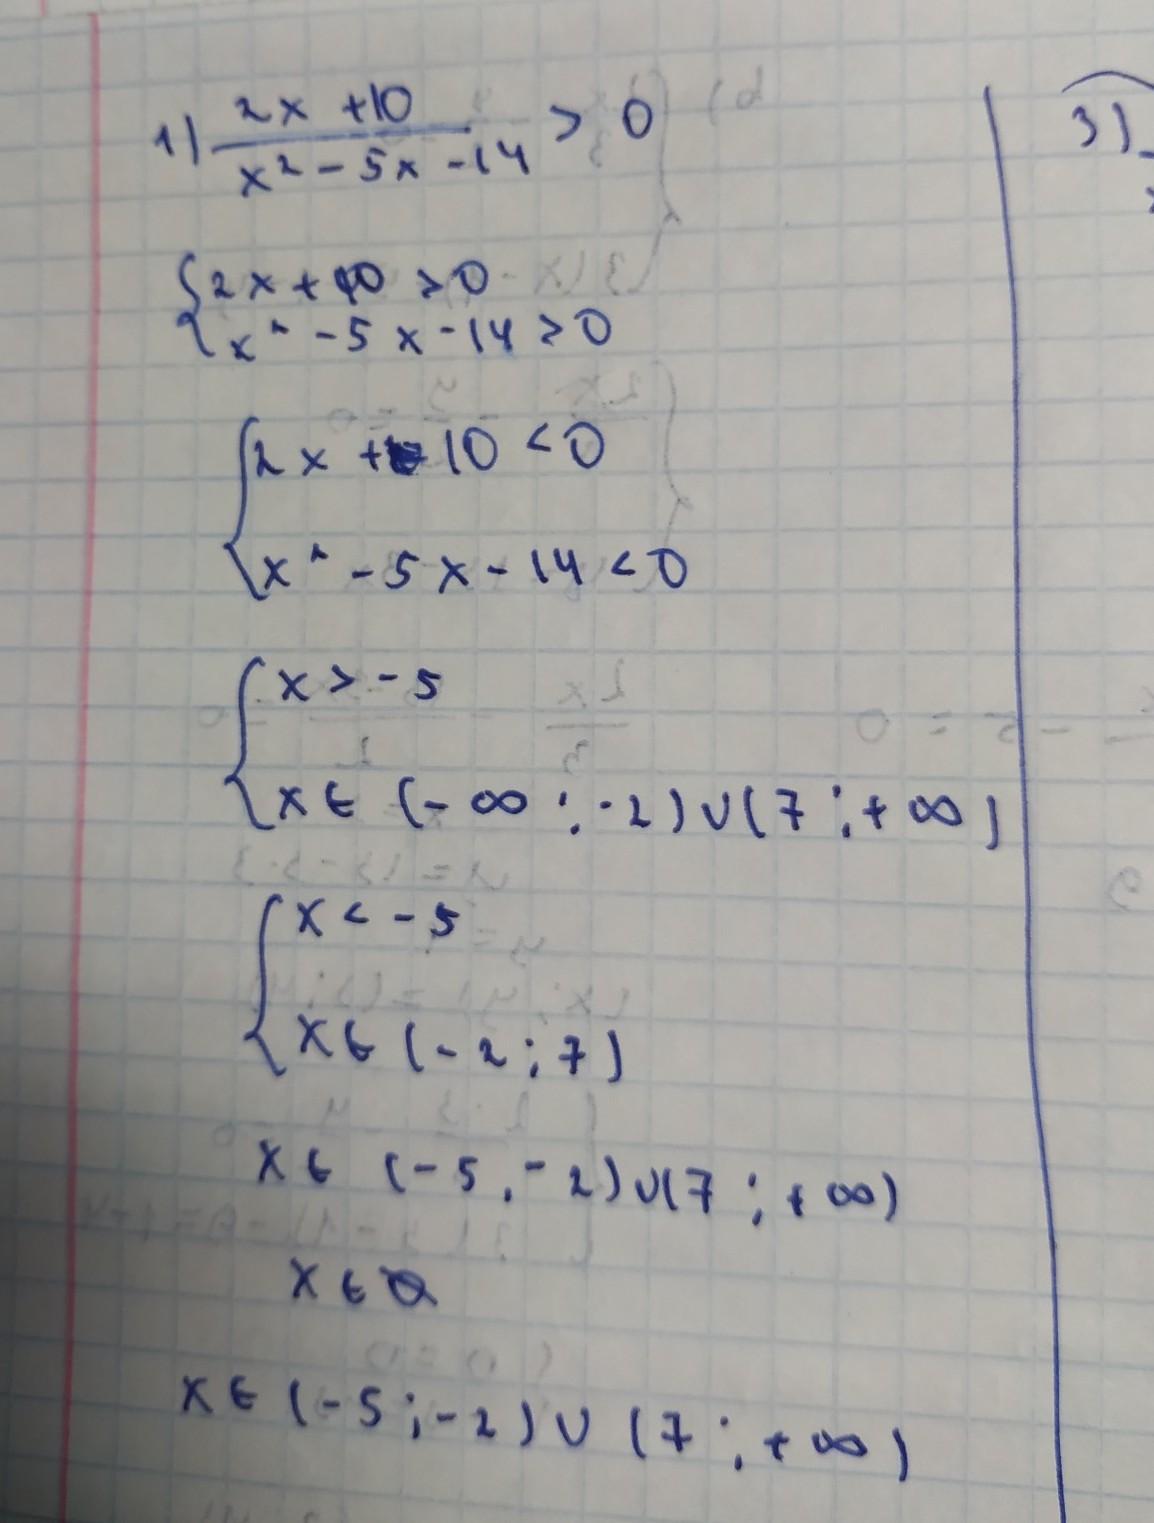 1) 2x + 10
x² - 5x - 14 > 0
{ 2x + 10 > 0
x² - 5x - 14 > 0
{ 2x + 10 < 0
x² - 5x - 14 < 0
{ x > - 5
x ∈ (- ∞ ; - 2) ∪ (7 ; + ∞)
{ x < - 5
x ∈ (- 2 ; 7)
x ∈ (- 5, - 2) ∪ (7 ; + ∞)
x ∈ ∅
x ∈ (- 5 ; - 2) ∪ (7 ; + ∞)
3)